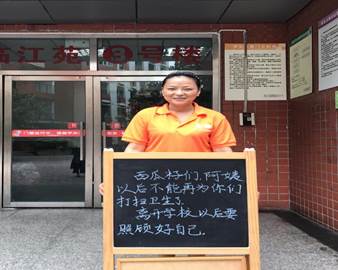 临江苑3号楼
西瓜籽们,阿姨
以后不能再为你们
打扫卫生了
离开学校以后要
照顾好自己.